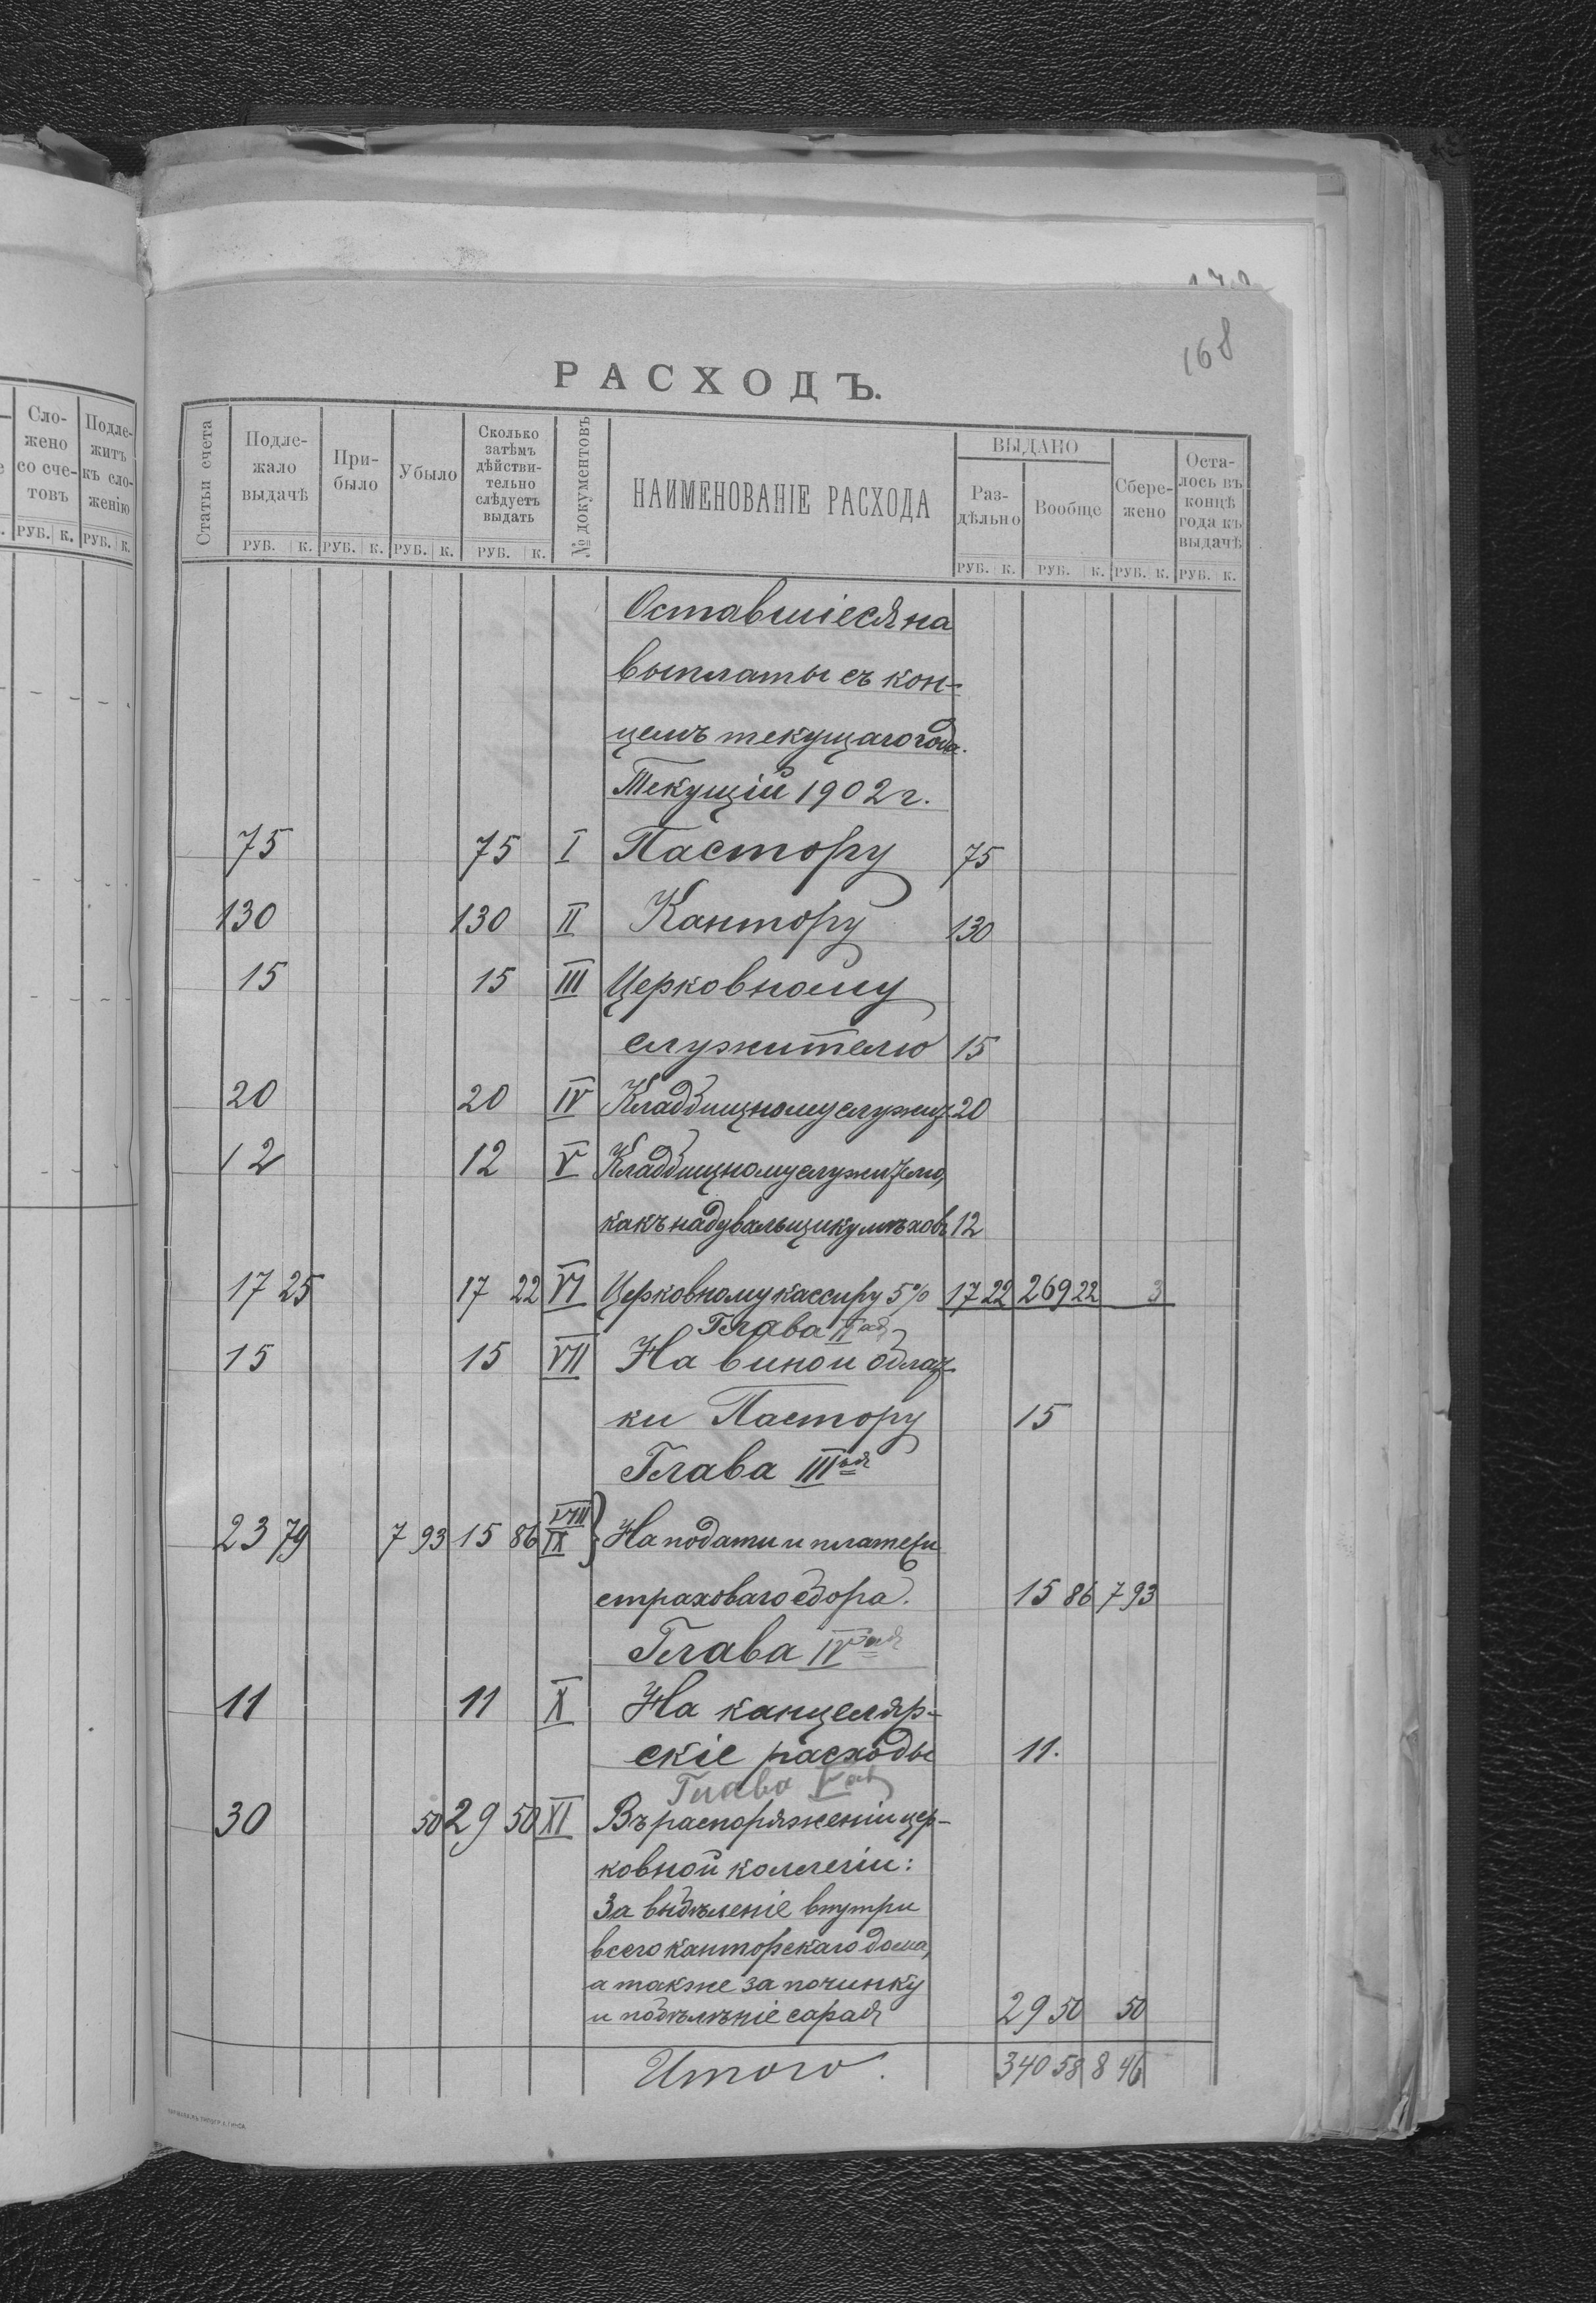 168
РАСХОДЪ.
Сло- жено со сче- товъ
Подле- житъ къ сло- женію
РУБ. К. РУБ. К.
Статьи счета
Подле- жало выдачѣ
При- было
Убыло
Сколько затѣмъ дѣйстви- тельно слѣдуетъ выдать
№ документовъ
НАИМЕНОВАНІЕ РАСХОДА
ВЫДАНО
Раз- дѣльно
Вообще
Сбере- жено
Оста- лось въ концѣ года къ выдачѣ
РУБ. К. РУБ. К. РУБ. К. РУБ. К. РУБ. К. РУБ. К. РУБ. К. РУБ. К.
Оставшіеся на
выплаты съ кон-
цемъ текущаго года.
Текущій 1902 г.
75 75 I Пастору 75
130 130 II Кантору 130
15 15 III Церковному
служителю 15
20 20 IV Кладбищному служит 20
12 12 V Кладбищному служителю,
какъ надувальщику мѣховъ 12
17 25 17 22 VI Церковному кассиру 5% 17 22 269 22 3
Глава II ая
15 15 VII На вино и облат
ки Пастору 15
Глава III ья
23 79 7 93 15 86 VIII IX } На подати и платежи
страховаго сбора. 15 86 7 93
Глава IV ая
11 11 X На канцеляр-
скіе расходы 11.
Глава V ая
30 50 29 50 XI Въ распоряженіи цер-
ковной коллегіи:
За выбѣленіе внутри
всего канторскаго дома,
а также за починку
и побѣлѣніе сарая 29 50 50
Итого. 340 58 8 46